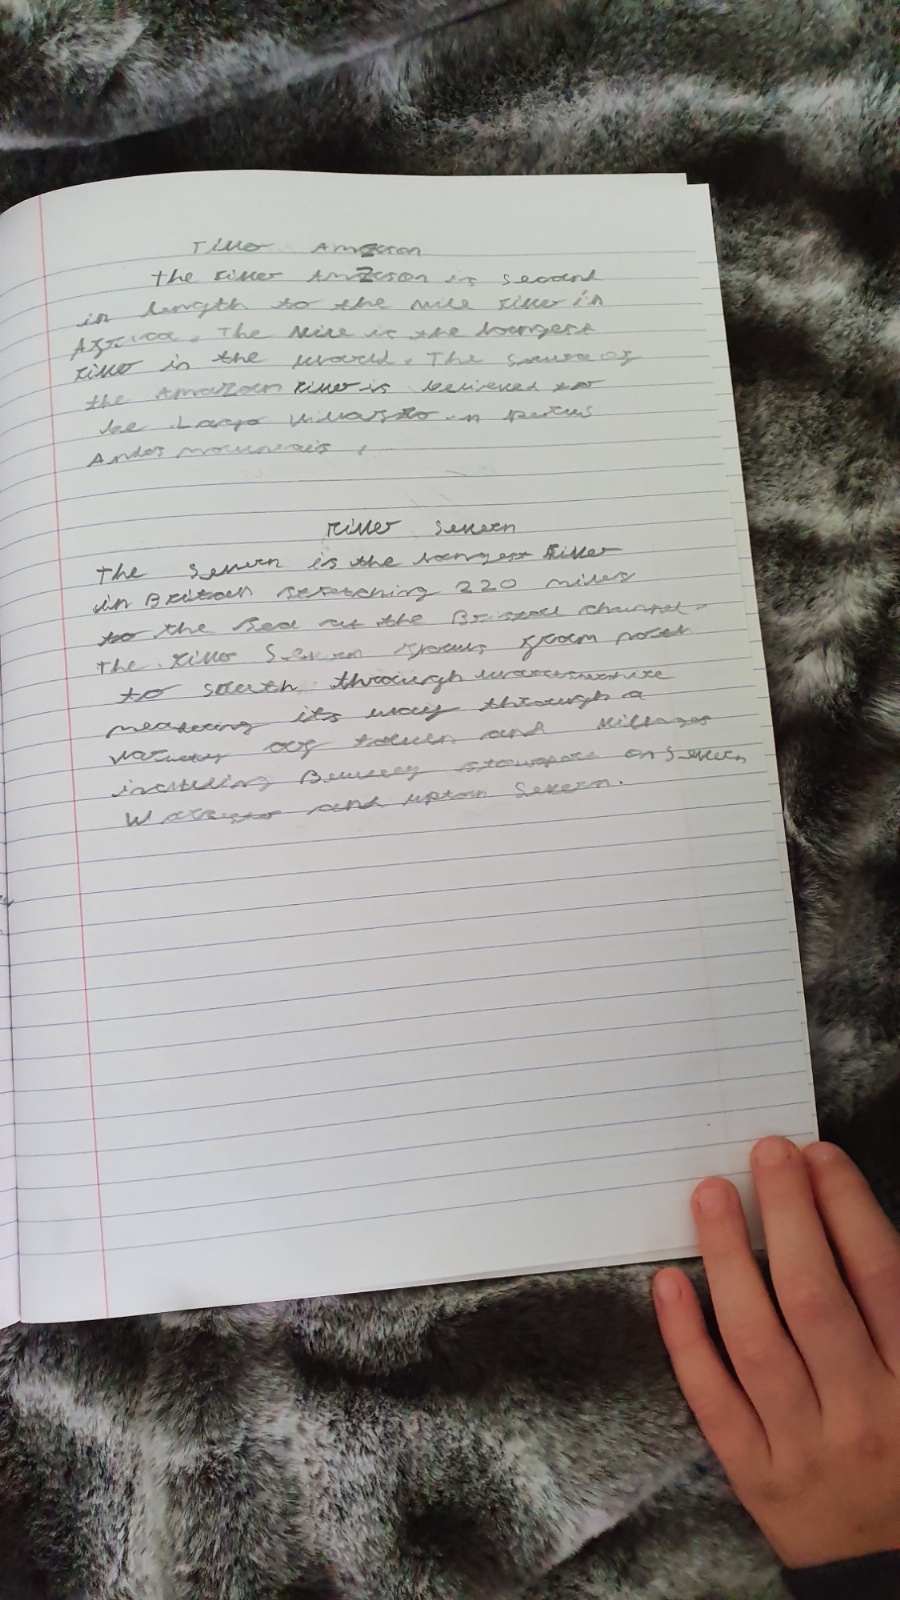 River Amazon
The river Amazon is second
in length to the Nile river in
Africa. The Nile is the longest
river in the world. The source of
the Amazon river is believed to
be Lago in Perus
Andes mountais.
River Severn
The Severn is the longest River
in Britain stretching 220 miles
to the Sea at the Bristol channel.
the river Severn flows from north
to south through worcestershire
its way through a
variety of towns and villages
including Bewdley stourport on Severn
Worcester and upton Severn.